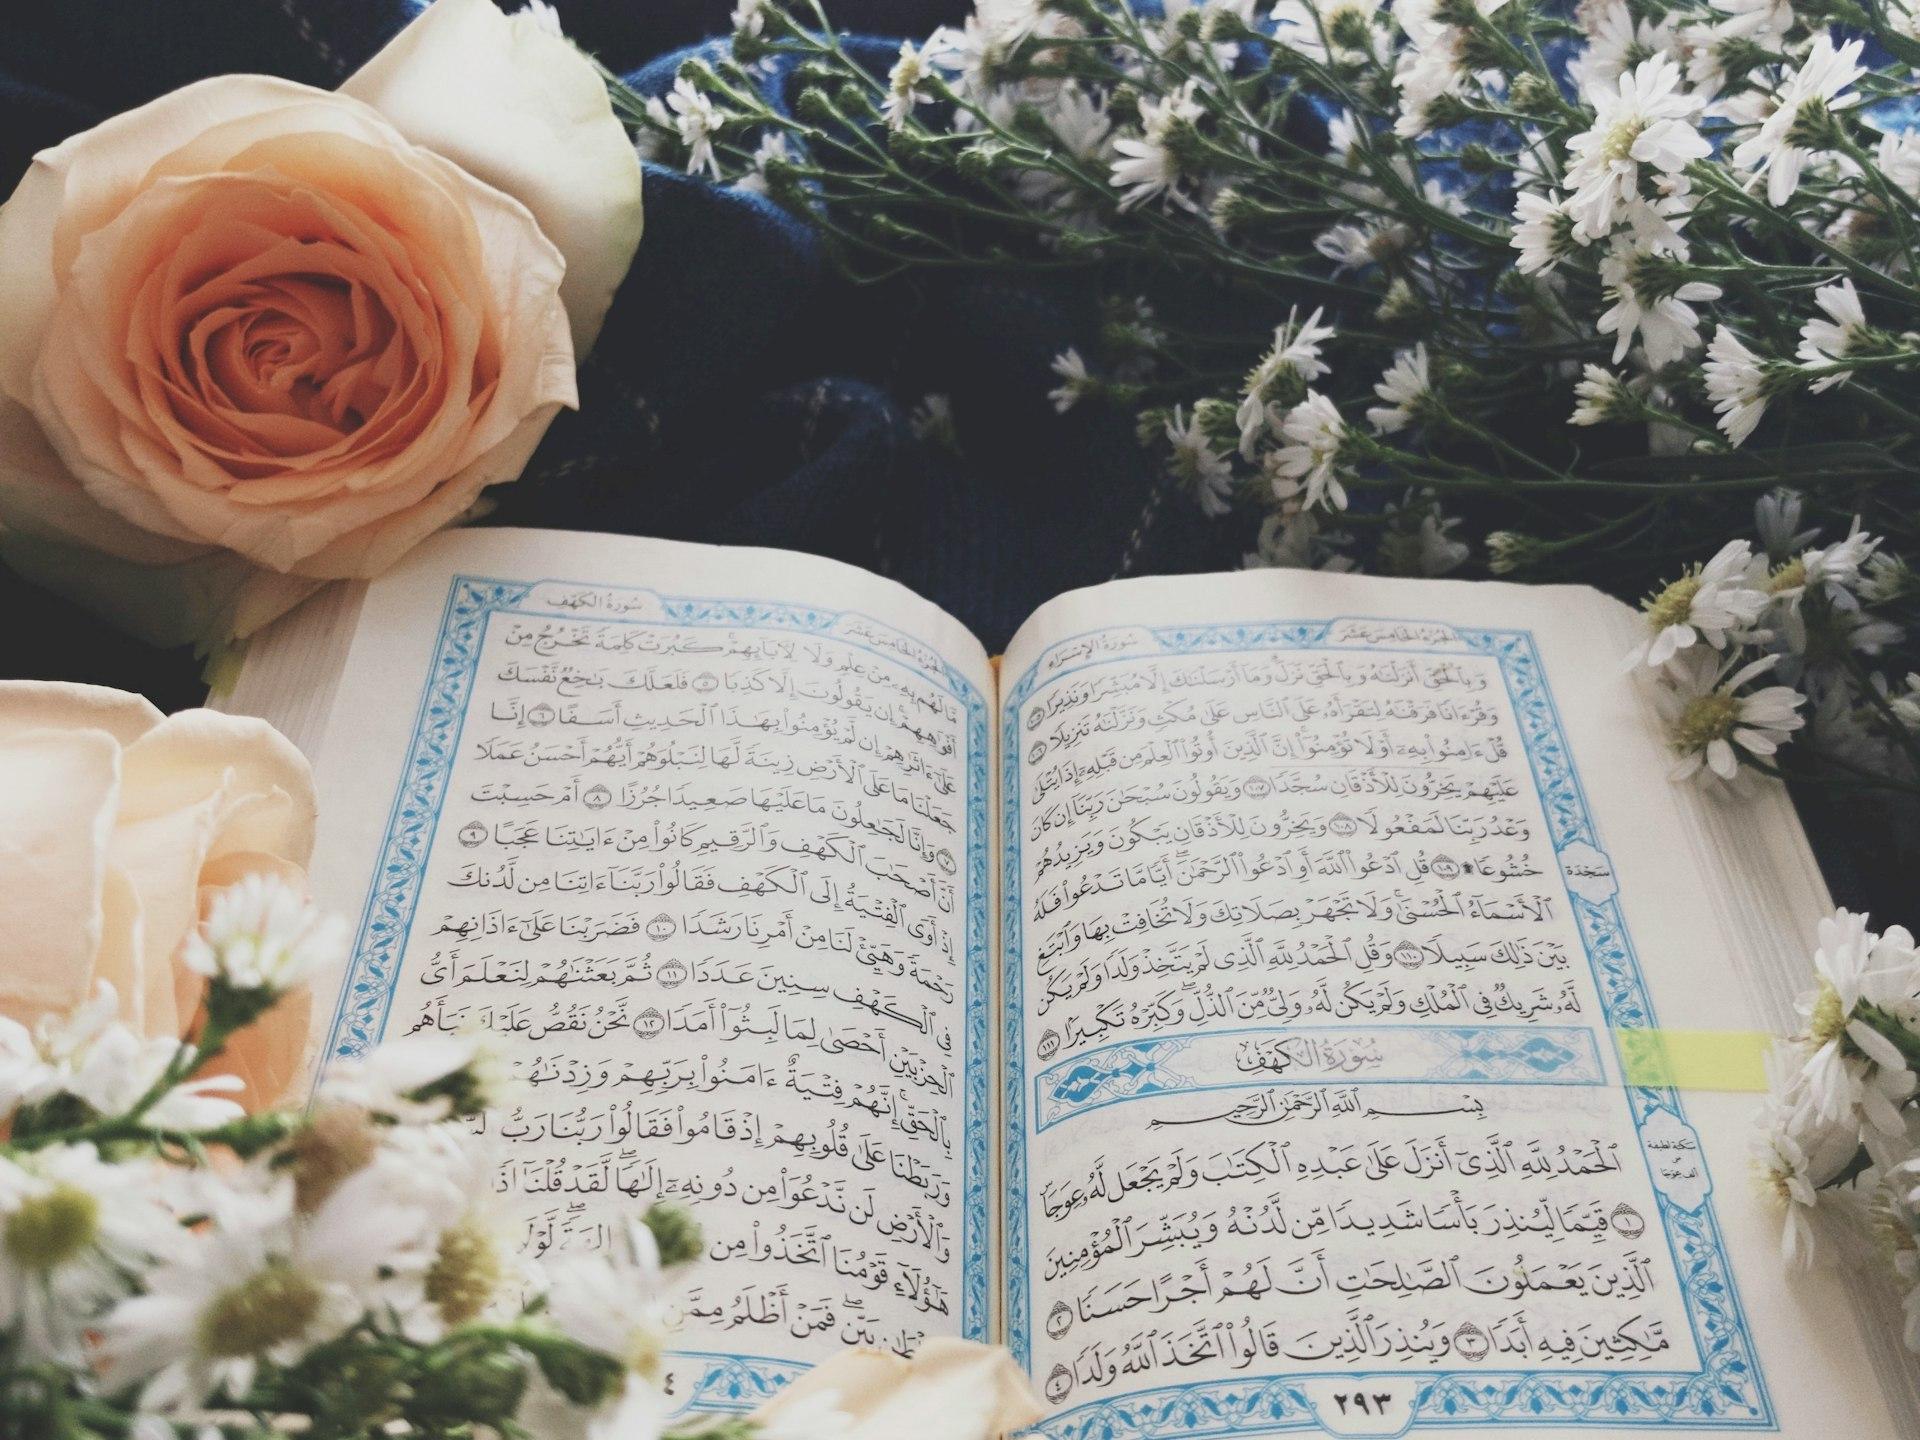 الجزء الخامس عشر سورة الإسراء
وَبِٱلْحَقِّ أَنزَلْنَٰهُ وَبِٱلْحَقِّ نَزَلَ وَمَآ أَرْسَلْنَٰكَ إِلَّا مُبَشِّرًا وَنَذِيرًا ١٠٥
وَقُرْءَانًا فَرَقْنَٰهُ لِتَقْرَأَهُۥ عَلَى ٱلنَّاسِ عَلَىٰ مُكْثٍ وَنَزَّلْنَٰهُ تَنزِيلًا ١٠٦
قُلْ ءَامِنُوا۟ بِهِۦٓ أَوْ لَا تُؤْمِنُوٓا۟ إِنَّ ٱلَّذِينَ أُوتُوا۟ ٱلْعِلْمَ مِن قَبْلِهِۦٓ إِذَا يُتْلَىٰ
عَلَيْهِمْ يَخِرُّونَ لِلْأَذْقَانِ سُجَّدًا ١٠٧ وَيَقُولُونَ سُبْحَٰنَ رَبِّنَآ إِن كَانَ
وَعْدُ رَبِّنَا لَمَفْعُولًا ١٠٨ وَيَخِرُّونَ لِلْأَذْقَانِ يَبْكُونَ وَيَزِيدُهُمْ
خُشُوعًا ۩ ١٠٩ قُلِ ٱدْعُوا۟ ٱللَّهَ أَوِ ٱدْعُوا۟ ٱلرَّحْمَٰنَ ۖ أَيًّا مَّا تَدْعُوا۟ فَلَهُ
سجدة
ٱلْأَسْمَآءُ ٱلْحُسْنَىٰ ۚ وَلَا تَجْهَرْ بِصَلَاتِكَ وَلَا تُخَافِتْ بِهَا وَٱبْتَغِ
بَيْنَ ذَٰلِكَ سَبِيلًا ١١٠ وَقُلِ ٱلْحَمْدُ لِلَّهِ ٱلَّذِى لَمْ يَتَّخِذْ وَلَدًا وَلَمْ يَكُن
لَّهُۥ شَرِيكٌ فِى ٱلْمُلْكِ وَلَمْ يَكُن لَّهُۥ وَلِىٌّ مِّنَ ٱلذُّلِّ ۖ وَكَبِّرْهُ تَكْبِيرًۢا ١١١
سورة الكهف
بِسْمِ ٱللَّهِ ٱلرَّحْمَٰنِ ٱلرَّحِيمِ
ٱلْحَمْدُ لِلَّهِ ٱلَّذِىٓ أَنزَلَ عَلَىٰ عَبْدِهِ ٱلْكِتَٰبَ وَلَمْ يَجْعَل لَّهُۥ عِوَجَا ۜ
سكتة لطيفة
١ قَيِّمًا لِّيُنذِرَ بَأْسًا شَدِيدًا مِّن لَّدُنْهُ وَيُبَشِّرَ ٱلْمُؤْمِنِينَ
ٱلَّذِينَ يَعْمَلُونَ ٱلصَّٰلِحَٰتِ أَنَّ لَهُمْ أَجْرًا حَسَنًا ٢
مَّٰكِثِينَ فِيهِ أَبَدًا ٣ وَيُنذِرَ ٱلَّذِينَ قَالُوا۟ ٱتَّخَذَ ٱللَّهُ وَلَدًا ٤
٢٩٣
الجزء الخامس عشر سورة الكهف
مَّا لَهُم بِهِۦ مِنْ عِلْمٍ وَلَا لِءَابَآئِهِمْ ۚ كَبُرَتْ كَلِمَةً تَخْرُجُ مِنْ
أَفْوَٰهِهِمْ ۚ إِن يَقُولُونَ إِلَّا كَذِبًا ٥ فَلَعَلَّكَ بَٰخِعٌ نَّفْسَكَ
عَلَىٰٓ ءَاثَٰرِهِمْ إِن لَّمْ يُؤْمِنُوا۟ بِهَٰذَا ٱلْحَدِيثِ أَسَفًا ٦ إِنَّا
جَعَلْنَا مَا عَلَى ٱلْأَرْضِ زِينَةً لَّهَا لِنَبْلُوَهُمْ أَيُّهُمْ أَحْسَنُ عَمَلًا
٧ وَإِنَّا لَجَٰعِلُونَ مَا عَلَيْهَا صَعِيدًا جُرُزًا ٨ أَمْ حَسِبْتَ
أَنَّ أَصْحَٰبَ ٱلْكَهْفِ وَٱلرَّقِيمِ كَانُوا۟ مِنْ ءَايَٰتِنَا عَجَبًا ٩
إِذْ أَوَى ٱلْفِتْيَةُ إِلَى ٱلْكَهْفِ فَقَالُوا۟ رَبَّنَآ ءَاتِنَا مِن لَّدُنكَ
رَحْمَةً وَهَيِّئْ لَنَا مِنْ أَمْرِنَا رَشَدًا ١٠ فَضَرَبْنَا عَلَىٰٓ ءَاذَانِهِمْ
فِى ٱلْكَهْفِ سِنِينَ عَدَدًا ١١ ثُمَّ بَعَثْنَٰهُمْ لِنَعْلَمَ أَىُّ
ٱلْحِزْبَيْنِ أَحْصَىٰ لِمَا لَبِثُوٓا۟ أَمَدًا ١٢ نَّحْنُ نَقُصُّ عَلَيْكَ نَبَأَهُم
بِٱلْحَقِّ ۚ إِنَّهُمْ فِتْيَةٌ ءَامَنُوا۟ بِرَبِّهِمْ وَزِدْنَٰهُمْ
وَرَبَطْنَا عَلَىٰ قُلُوبِهِمْ إِذْ قَامُوا۟ فَقَالُوا۟ رَبُّنَا رَبُّ
وَٱلْأَرْضِ لَن نَّدْعُوَا۟ مِن دُونِهِۦٓ إِلَٰهًا ۖ لَّقَدْ قُلْنَآ إِذًا
هَٰٓؤُلَآءِ قَوْمُنَا ٱتَّخَذُوا۟ مِن
بَيِّنٍ ۖ فَمَنْ أَظْلَمُ مِمَّنِ